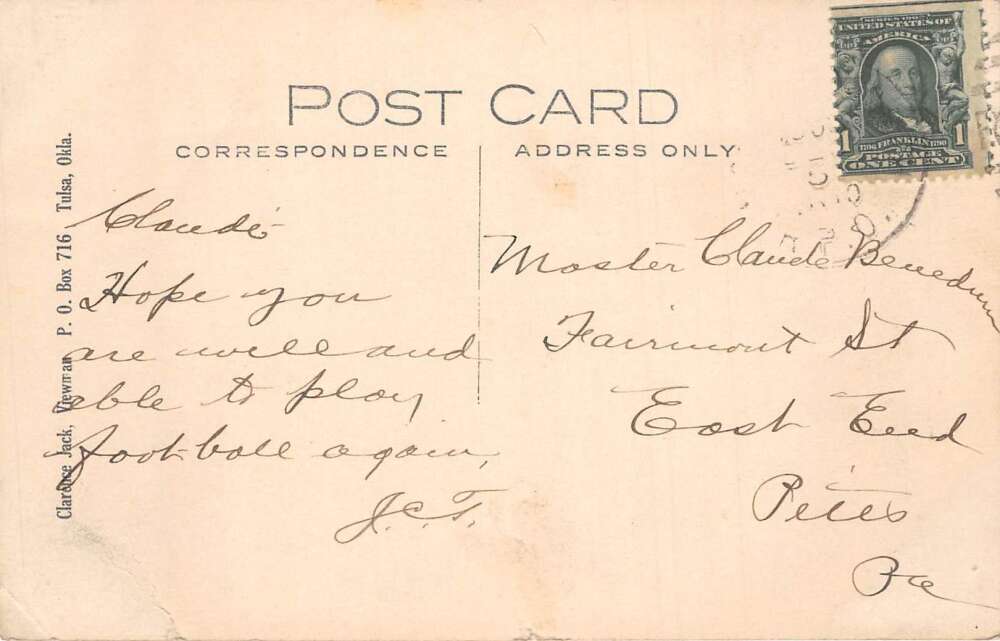 POST CARD
CORRESPONDENCE
ADDRESS ONLY
SERIES 1902
UNITED STATES OF
AMERICA
1 1706 FRANKLIN 1790 1
POSTAGE
ONE CENT
Clarence Jack, Viewman P. O. Box 716 Tulsa, Okla.
Claude
Hope you
are well and
able to play
foot-ball again,
J.C.T.
Master Claude Benedum
Fairmont St
East End
Pitts
Pa